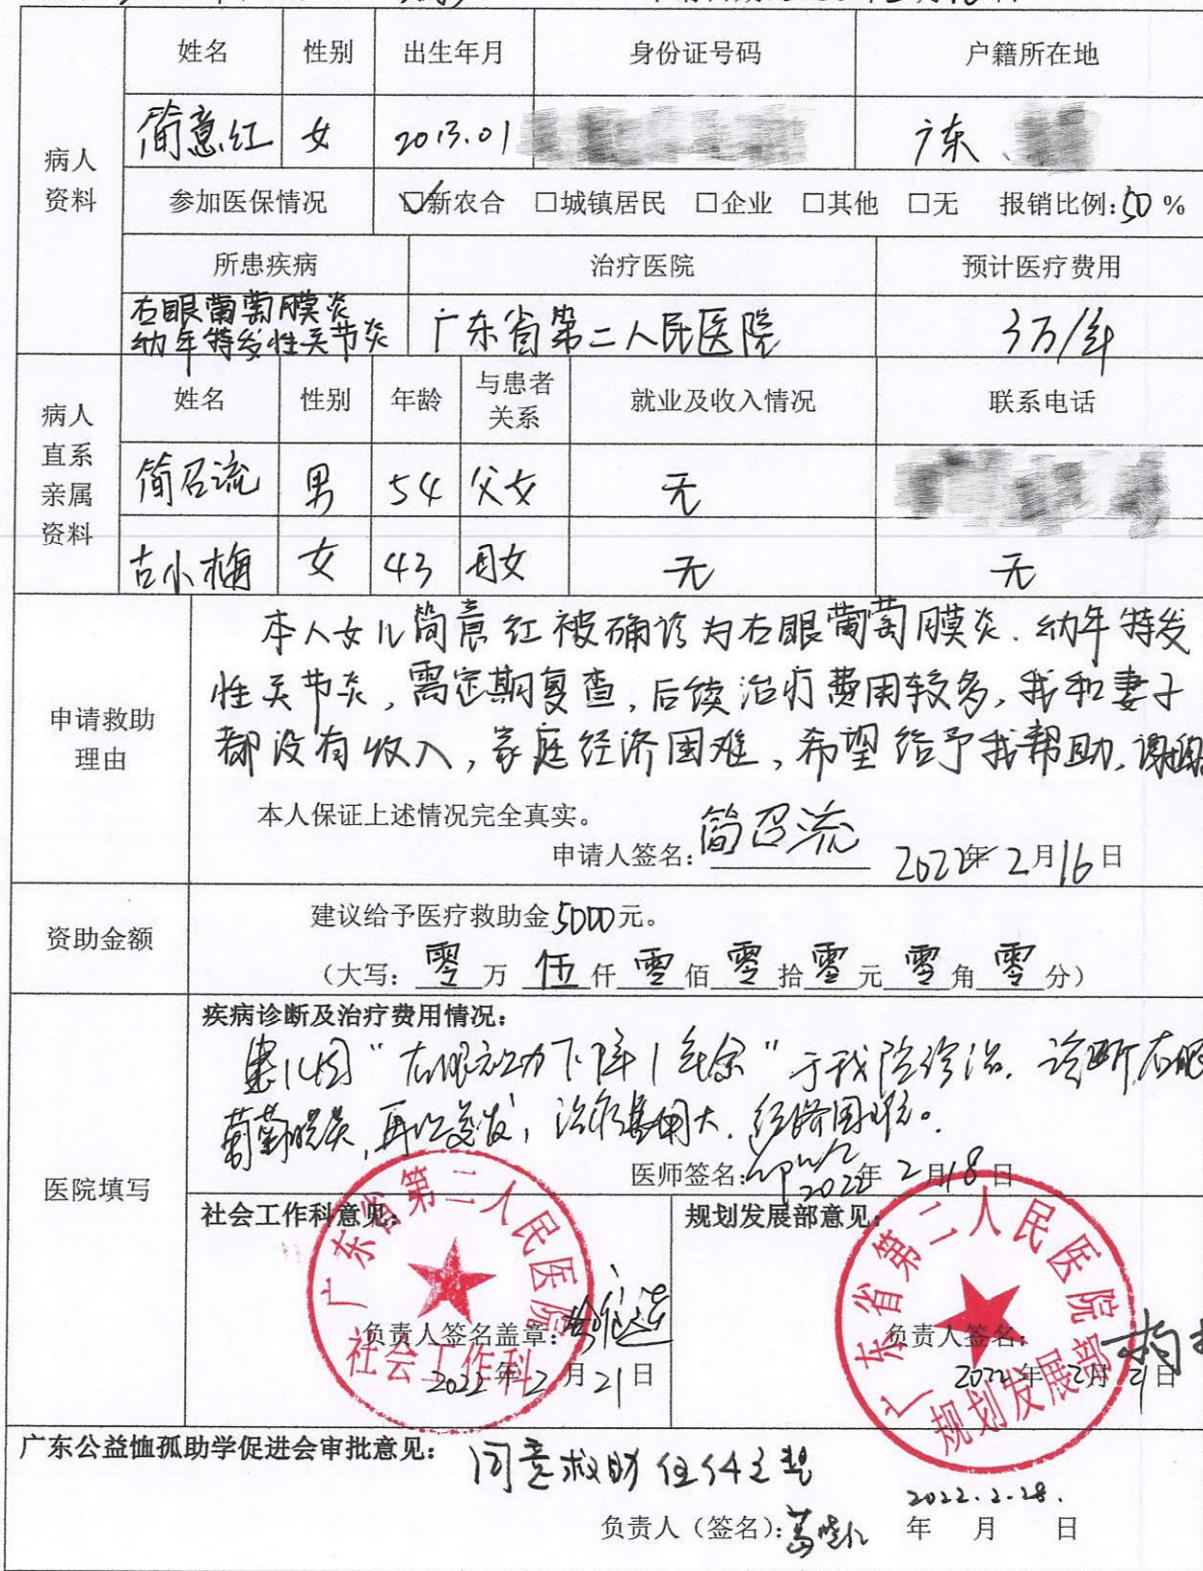 姓名 性别 出生年月 身份证号码 户籍所在地
病人资料
简意红 女 2013.01 广东、
参加医保情况 ☑新农合 □城镇居民 □企业 □其他 □无 报销比例:50 %
所患疾病 治疗医院 预计医疗费用
右眼葡萄膜炎
幼年特发性关节炎 广东省第二人民医院 3万/年
病人直系亲属资料
姓名 性别 年龄 与患者关系 就业及收入情况 联系电话
简召流 男 54 父女 无
古小梅 女 43 母女 无 无
申请救助理由
本人女儿简意红被确诊为右眼葡萄膜炎.幼年特发
性关节炎,需定期复查,后续治疗费用较多,我和妻子
都没有收入,家庭经济困难,希望给予我帮助,谢谢
本人保证上述情况完全真实。
申请人签名:简召流 2022年2月16日
资助金额
建议给予医疗救助金5000元。
(大写: 零万 伍仟 零佰 零拾 零元 零角 零分)
医院填写
疾病诊断及治疗费用情况:
患儿因“右眼视力下降1年余”于我院诊治.诊断右眼
葡萄膜炎,再次复发,治疗费用大.经济困难。
医师签名: 2022年2月18日
社会工作科意见: 规划发展部意见:
广东省第二人民医院 社会工作科
广东省第二人民医院 规划发展部
负责人签名盖章: 负责人签名:
2022年2月21日 2022年2月21日
广东公益恤孤助学促进会审批意见: 同意救助伍仟元整
2022.2.28.
负责人(签名): 年 月 日